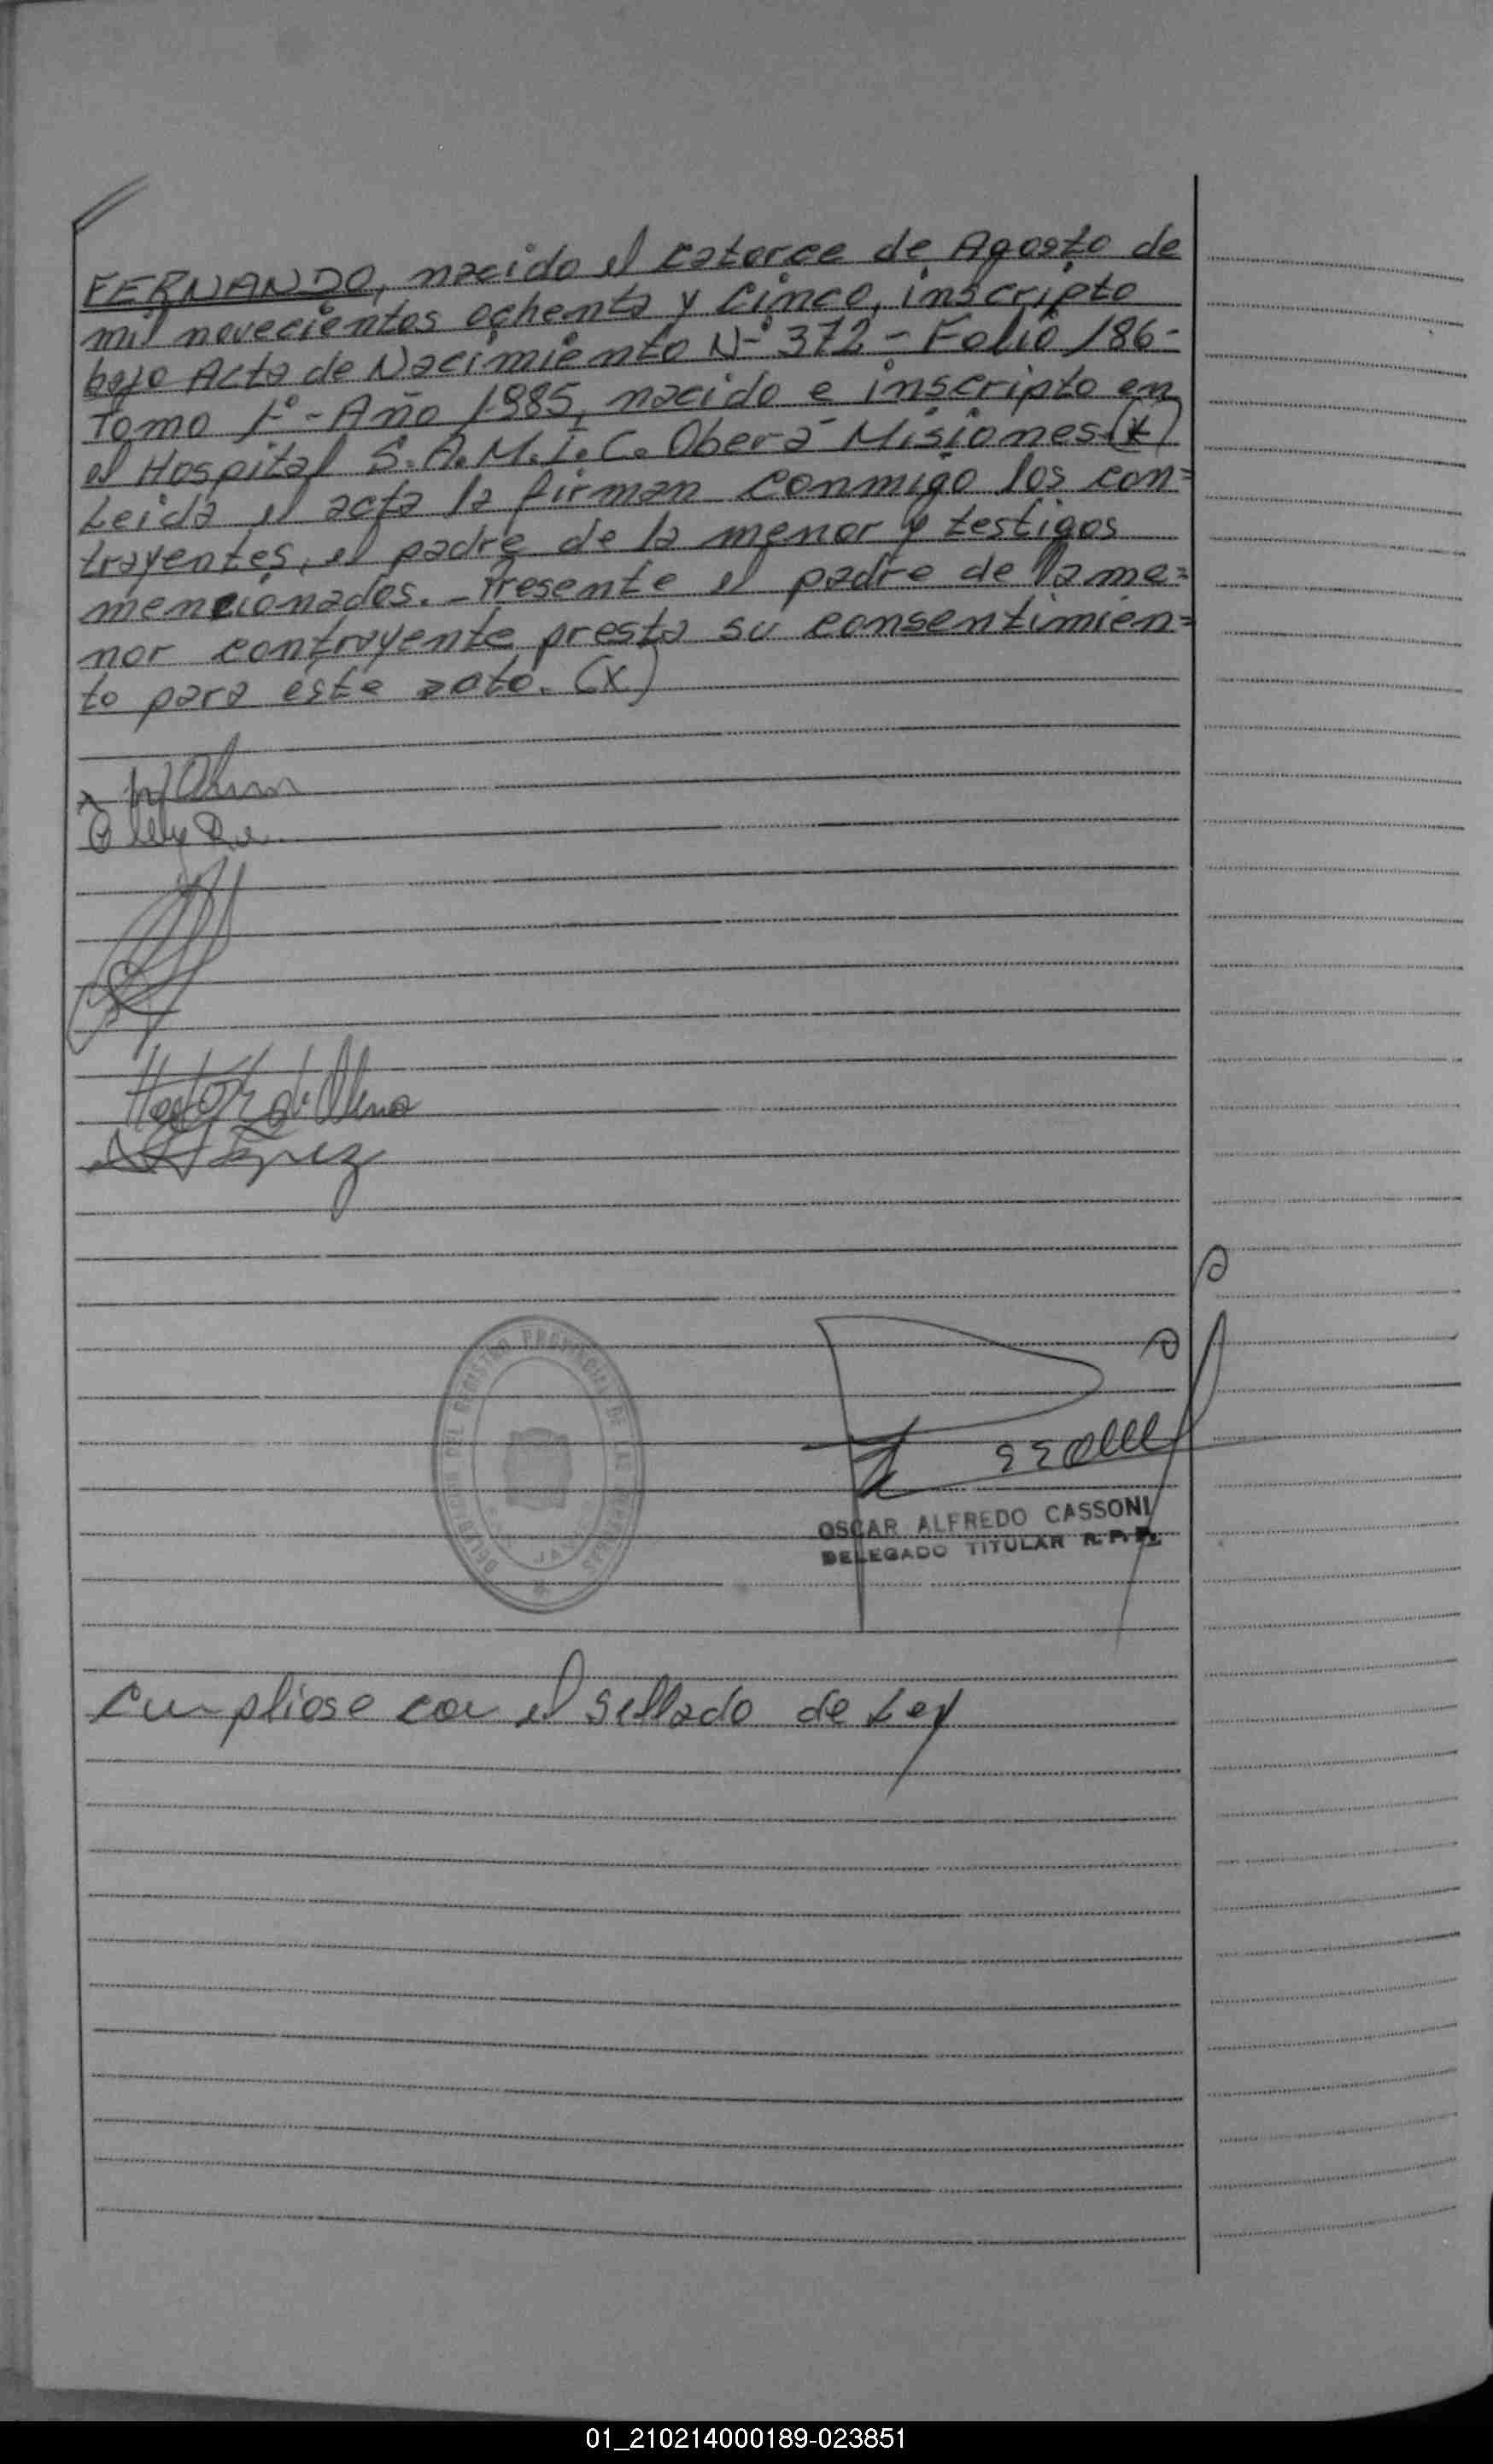 FERNANDO, nacido el catorce de Agosto de
mil novecientos ochenta y cinco, inscripto
bajo Acta de Nacimiento Nº 372 - Folio 186 -
Tomo 1º - Año 1985, nacido e inscripto en
el Hospital S.A.M.I.C. Oberá Misiones (x)
Leida el acta la firman conmigo los con=
trayentes, el padre de la menor y testigos
mencionados. - Presente el padre de la me=
nor contrayente presta su consentimien=
to para éste acto. (x)
OSCAR ALFREDO CASSONI
DELEGADO TITULAR R.P.P.
Cumpliose con el sellado de Ley
01_210214000189-023851